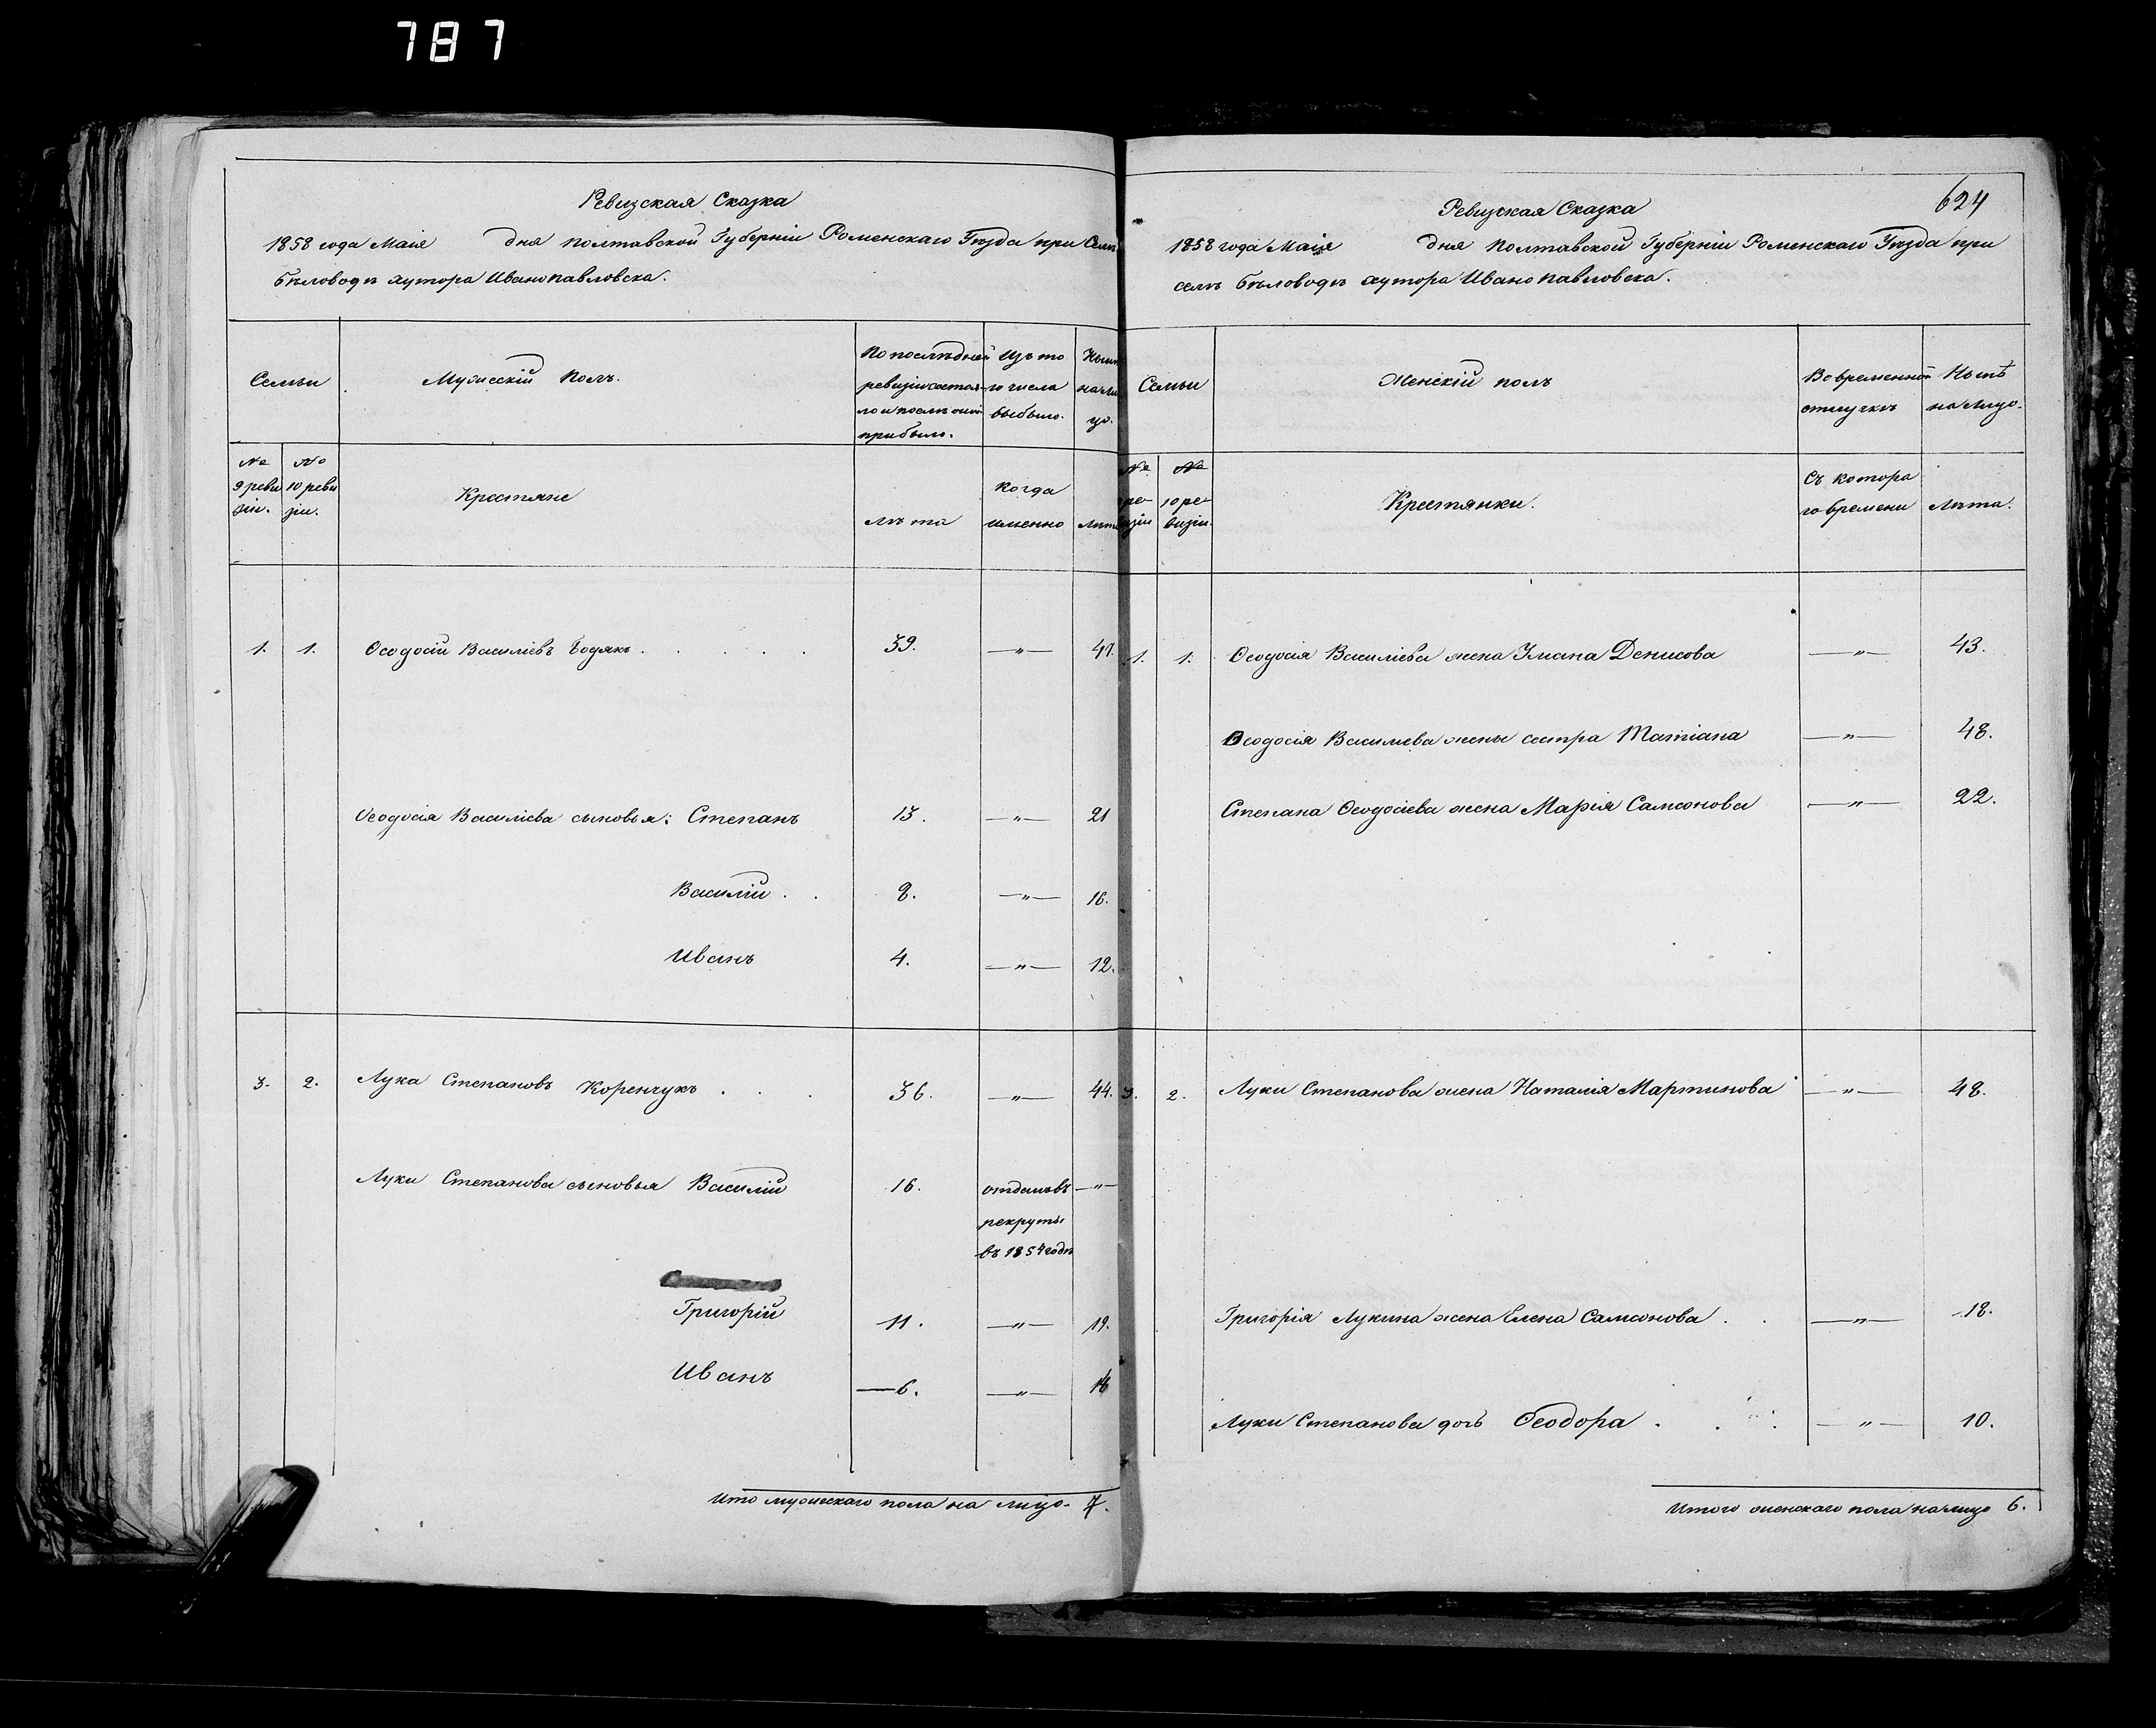 787
Ревизская Сказка
1858 года Маія дня Полтавской Губерніи Роменскаго Уѣзда при Селѣ
Бѣловодѣ хутора Иванопавловска.
Семьи
Мужескій Полъ.
По последней
ревизіи состоя-
ло и послѣ оной
прибыло.
Изъ то
го числа
выбыло.
Нынѣ
на ли
цо.
№ 9 реви зіи.
№ 10 реви зіи.
Крестяне
лѣта
когда
именно
лѣта
1. 1. Ѳеодосій Василіевъ Бодякъ . . . . . 39. —„— 47.
Ѳеодосія Василіева сыновья: Степанъ 13. —„— 21
Василій . . 8. —„— 16.
Иванъ 4. —„— 12.
3. 2. Лука Степановъ Коренчукъ . . . 36. —„— 44.
Луки Степанова сыновья Василій 16. отданъ въ —„—
рекруты
въ 1854 годѣ
Григорій 11. —„— 19.
Иванъ —6. —„— 14
Ито мужескаго пола на лицо. 7.
624
Ревизская Сказка
1858 года Маія дня Полтавской Губерніи Роменскаго Уѣзда при
селѣ Бѣловодѣ хутора Иванопавловска.
Семьи
Женскій полъ
Во временной
отлучкѣ
Нынѣ
на лицо.
№ ре- визіи
№ 10 ре- визіи.
Крестянки.
Съ котора
го времени
Лѣта.
1. 1. Ѳеодосія Василіева жена Уліана Денисова —„— 43.
Ѳеодосія Василіева жены сестра Татіана —„— 48.
Степана Ѳеодосіева жена Марія Самсонова —„— 22.
3. 2. Луки Степанова жена Наталія Мартинова —„— 48.
Григорія Лукина жена Елена Самсонова . . —„— 18.
Луки Степанова дочь Ѳеодора . . . —„— 10.
Итого женскаго пола налицо 6.